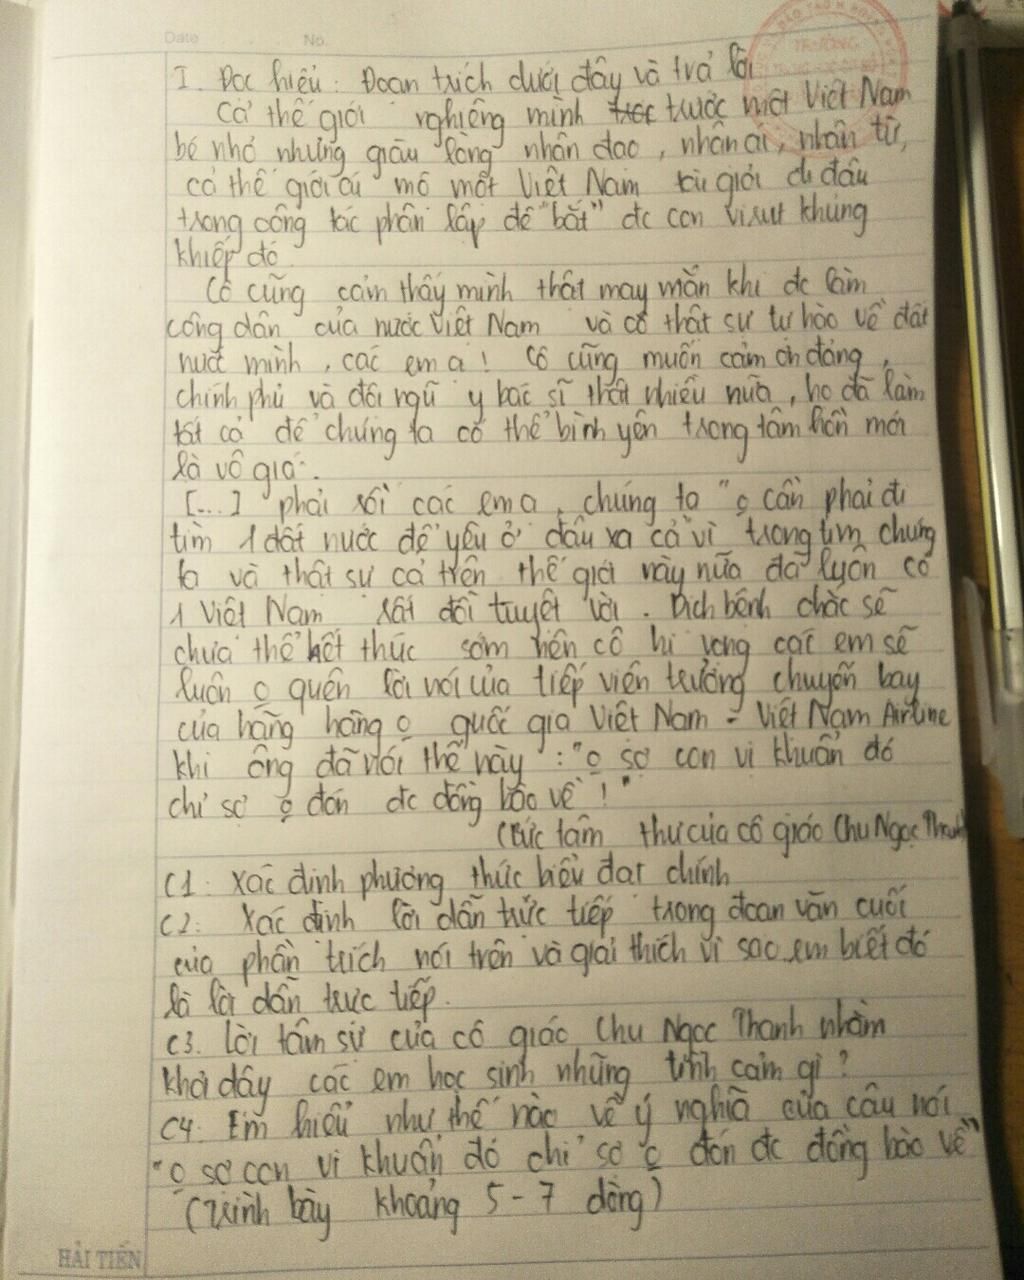 Date No.
I. Đọc hiểu: Đoạn trích dưới đây và trả lời
Cả thế giới nghiêng mình trước một Việt Nam
bé nhỏ nhưng giàu lòng nhân đạo, nhân ái, nhân từ,
cả thế giới ái mộ một Việt Nam tài giỏi đi đầu
trong công tác phân lập để "bắt" đc con virut khủng
khiếp đó
Cô cũng cảm thấy mình thật may mắn khi đc làm
công dân của nước Việt Nam và cô thật sự tự hào về đất
nước mình, các em ạ! Cô cũng muốn cảm ơn đảng,
chính phủ và đội ngũ y bác sĩ thật nhiều nữa, họ đã làm
tất cả để chúng ta có thể bình yên trong tâm hồn mới
là vô giá.
[...] phải rồi các em ạ, chúng ta "o cần phải đi
tìm 1 đất nước để yêu ở đâu xa cả vì trong tim chúng
ta và thật sự cả trên thế giới này nữa đã luôn có
1 Việt Nam rất đỗi tuyệt vời. Dịch bệnh chắc sẽ
chưa thể kết thúc sớm nên cô hi vọng các em sẽ
luôn o quên lời nói của tiếp viên trưởng chuyến bay
của hãng hàng o quốc gia Việt Nam - Việt Nam Airline
khi ông đã nói thế này : "o sợ con vi khuẩn đó
chỉ sợ o đón đc đồng bào về !"
(Bức tâm thư của cô giáo Chu Ngọc Thanh
C1: Xác định phương thức biểu đạt chính
C2: Xác định lời dẫn trực tiếp trong đoạn văn cuối
của phần trích nói trên và giải thích vì sao em biết đó
là lời dẫn trực tiếp.
C3. Lời tâm sự của cô giáo Chu Ngọc Thanh nhằm
khơi dậy các em học sinh những tình cảm gì ?
C4: Em hiểu như thế nào về ý nghĩa của câu nói
"o sợ con vi khuẩn đó chỉ sợ o đón đc đồng bào về"
(Trình bày khoảng 5 - 7 dòng)
HẢI TIẾN